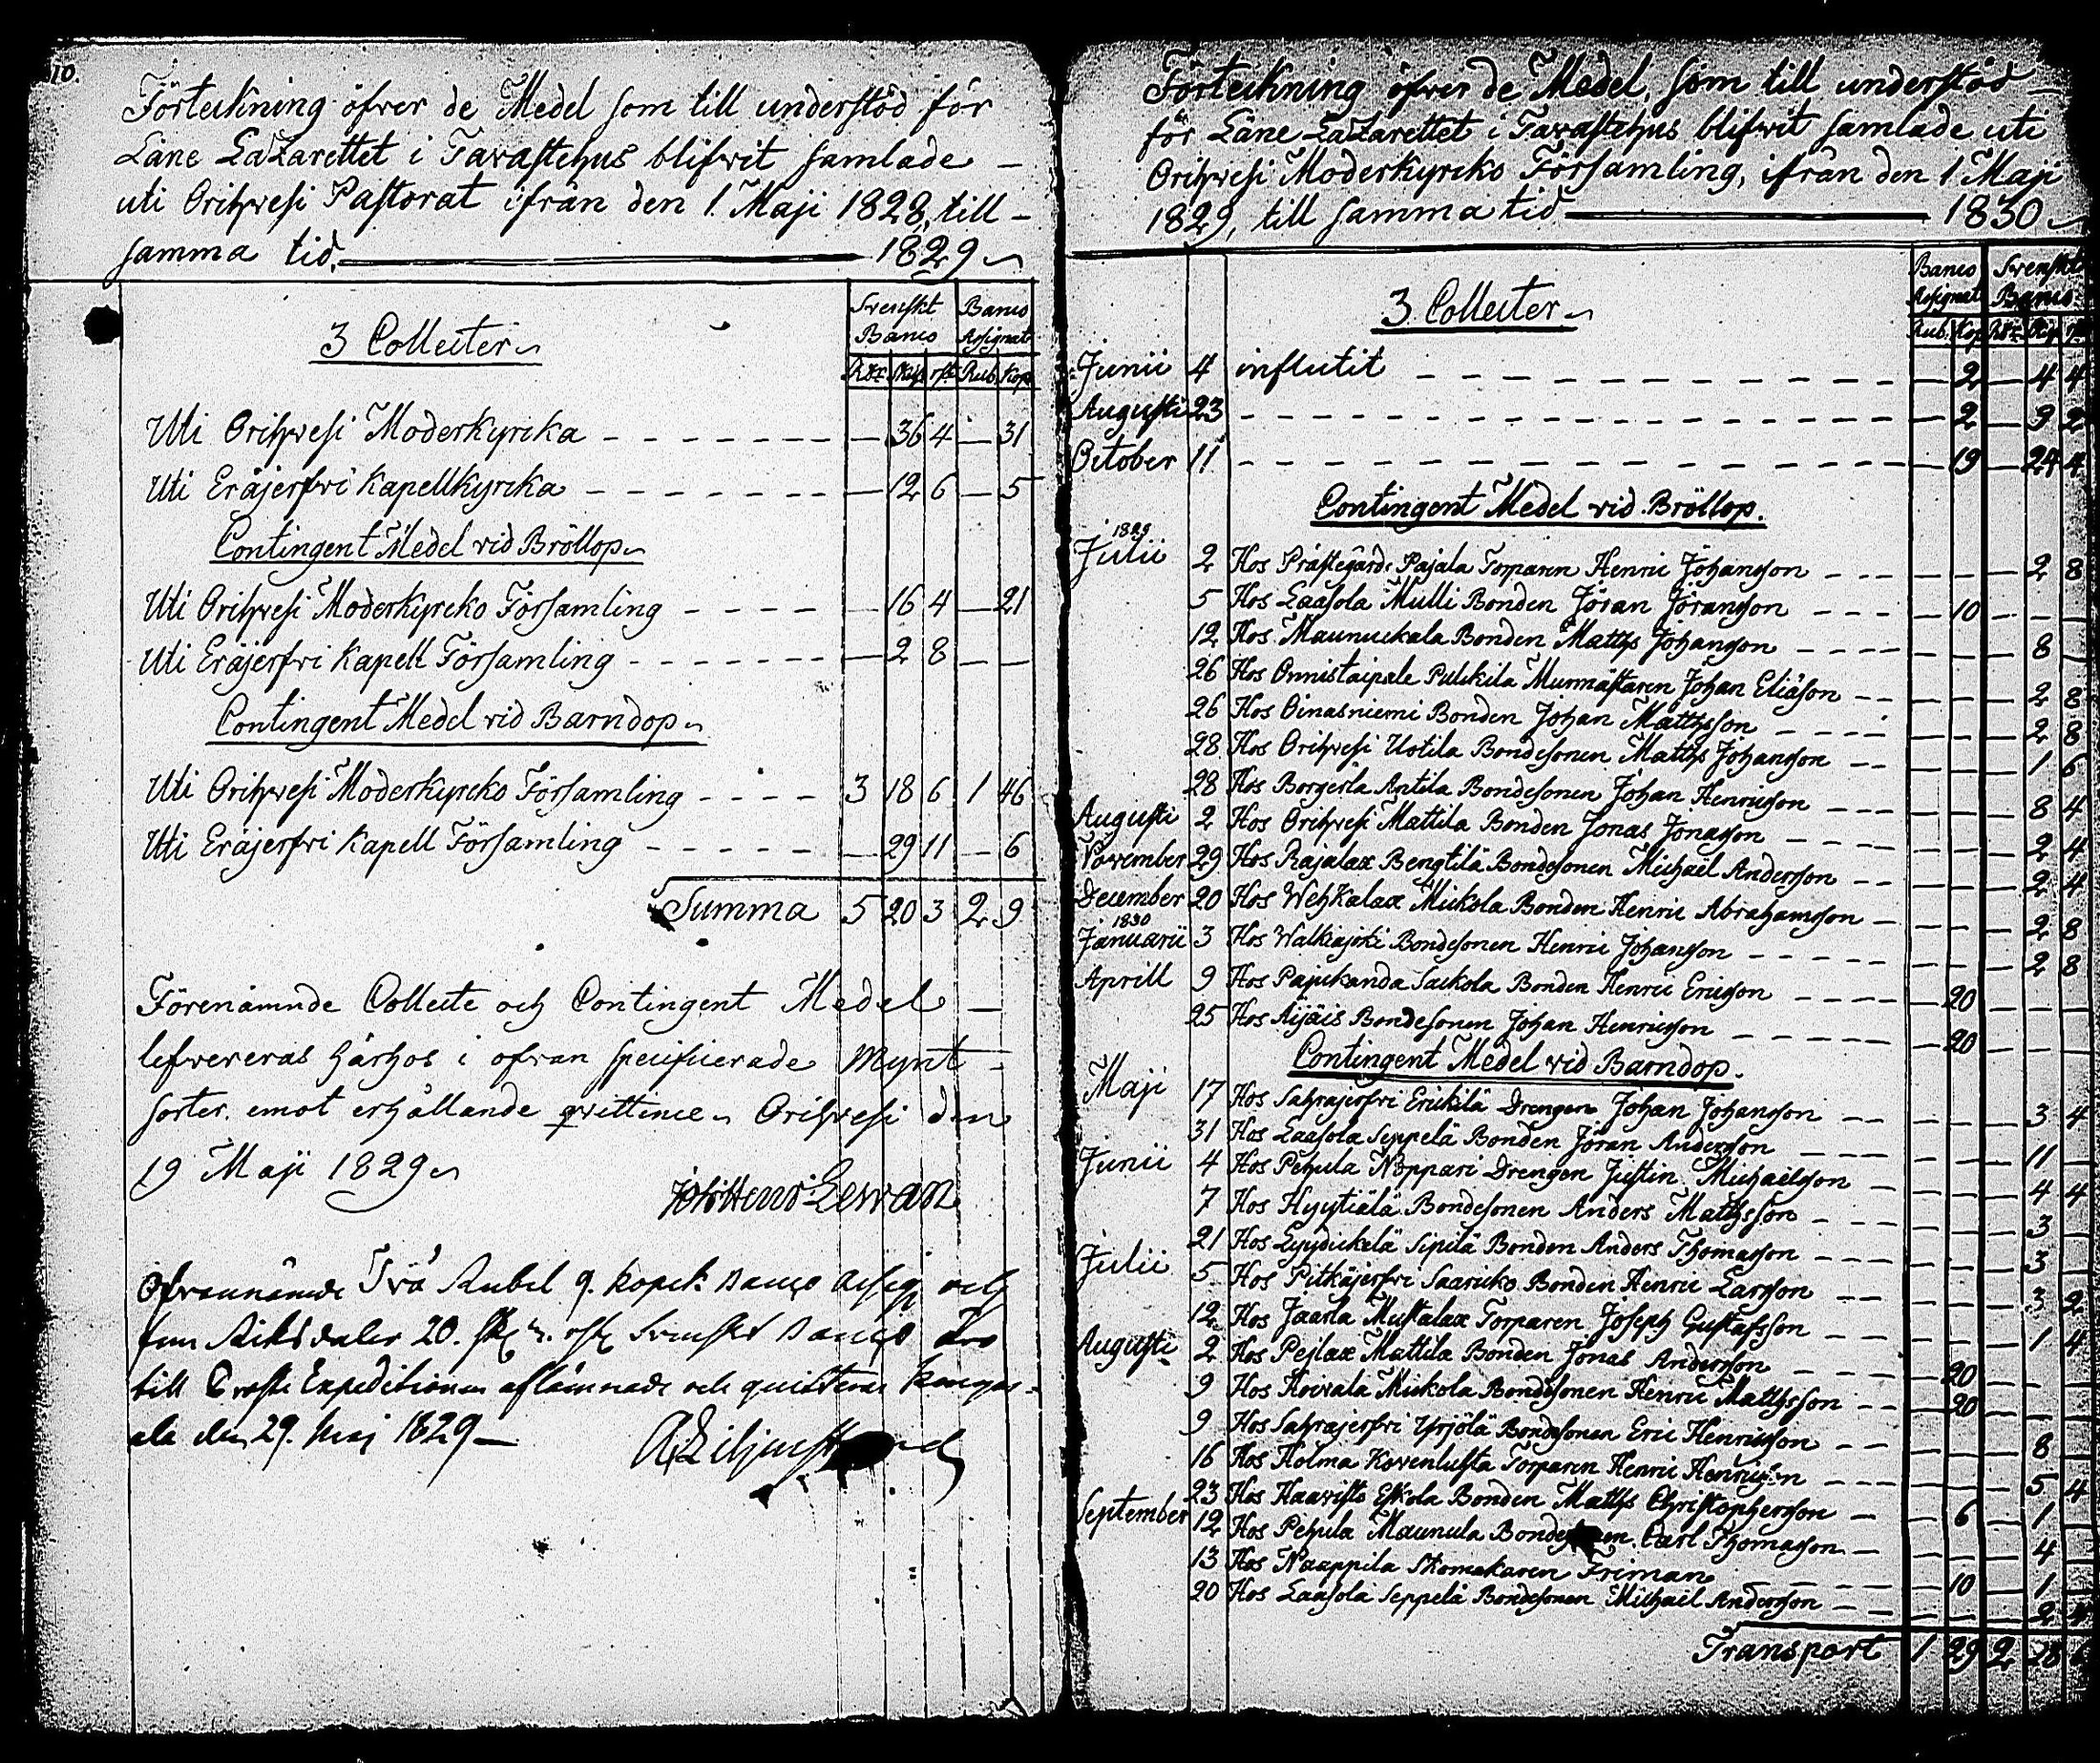 10.
Förteckning öfver de Medel som till understöd för
Läne Lazarettet i Tavastehus blifvit samlade –
uti Orihvesi Pastorat ifrån den 1. Maji 1828, till –
samma tid. 1829
Svenskt Banco
Banco Assignat
3 Collecter
Rdr Skil. rst. Rub. Kop.
Uti Orihvesi Moderkyrcka – 36 4 – 31
Uti Eräjerfvi Kapellkyrcka – 12 6 – 5
Contingent Medel vid Bröllop
Uti Orihvesi Moderkyrcko Församling – 16 4 – 21
Uti Eräjerfvi Kapell Församling – 2 8 – –
Contingent Medel vid Barndop
Uti Orihvesi Moderkyrcko Församling 3 18 6 1 46
Uti Eräjerfvi Kapell Församling – 29 11 – 6
Summa 5 20 3 2 9
Förenämnde Collecte och Contingent Medel –
lefvereras härhos i ofvan specificerade Mynt –
sorter emot erhållande qvittence. Orihvesi den
19 Maji 1829
Joh: Henr: Lewan
Ofvannämde Två Rubel 9. kopek Banco Assig. och
fem Riksdaler 20. sk. 3. rst. Svenskt Banco
till Crofts Expeditionen aflämnade och quitteras Kangas-
ala den 29. Maj 1829 –
A Liljestrand
Förteckning öfver de Medel, som till understöd –
för Läne Lazarettet i Tavastehus blifvit samlade uti
Orihvesi Moderkyrcko Församling, ifrån den 1 Maji
1829, till samma tid 1830
Banco Assignat
Svenskt Banco
3 Collecter
Rub. Kop. Rdr. Sk. rst.
Junii 4 influtit – 2 – 4 4
Augusti 23 – 2 – 9 2
October 11 – 19 – 24 4
Contingent Medel vid Bröllop.
1829
Julii 2 Hos Prästegårds Pajala Torparen Henric Johansson – – – 2 8
5 Hos Laasola Mulli Bonden Jöran Jöransson – 10 – – –
12 Hos Maunuckala Bonden Matths Johansson – – – 8 –
26 Hos Onnistaipale Pulckila Murmästaren Johan Eliasson – – – 2 8
26 Hos Oinasniemi Bonden Johan Matthsson – – – 2 8
28 Hos Orihvesi Uotila Bondesonen Matths Johansson – – – 1 6
28 Hos Borgerla Antila Bondesonen Johan Henricsson – – – 8 4
Augusti 2 Hos Orihvesi Mattila Bonden Jonas Jonasson – – – 2 4
November 29 Hos Rajalax Bengtilä Bondesonen Michaël Andersson – – – 2 4
December 20 Hos Wehkalax Mickola Bonden Henric Abrahamsson – – – 2 8
1830
Januarii 3 Hos Walkiajoki Bondesonen Henric Johansson – – – 2 8
Aprill 9 Hos Pajukanda Sackola Bonden Henric Ericsson – 20 – – –
25 Hos Äijäis Bondesonen Johan Henricsson – 20 – – –
Contingent Medel vid Barndop.
Maji 17 Hos Sahrajerfvi Erickilä Drengen Johan Johansson – – – 3 4
31 Hos Laasola Seppelä Bonden Jöran Andersson – – – 11 –
Junii 4 Hos Pehula Noppari Drengen Justin Michaelsson – – – 4 4
7 Hos Hyytiälä Bondesonen Anders Matthsson – – – 3 –
21 Hos Lyydickelä Sipilä Bonden Anders Thomasson – – – 3 –
Julii 5 Hos Pitkäjerfvi Saaricko Bonden Henric Larsson – – – 3 2
12 Hos Jaarla Mustalax Torparen Joseph Gustafsson – – – 1 4
Augusti 2 Hos Pejlax Mattila Bonden Jonas Andersson – 20 – – –
9 Hos Hoivala Mickola Bondesonen Henric Matthsson – 20 – – –
9 Hos Sahrajerfvi Yrjölä Bondesonen Eric Henricsson – – – 8 –
16 Hos Holma Kovenlusta Torparen Henric Henricsson – – – 5 4
23 Hos Haavisto Eskola Bonden Matths Christophersson – 6 – 1 –
September 12 Hos Pehula Maunula Bondesonen Carl Thomasson – – – 4 –
13 Hos Naappila Skomakaren Friman – 10 – 1 –
20 Hos Laasola Seppelä Bondesonen Michaël Andersson – – – 2 4
Transport 1 29 2 28